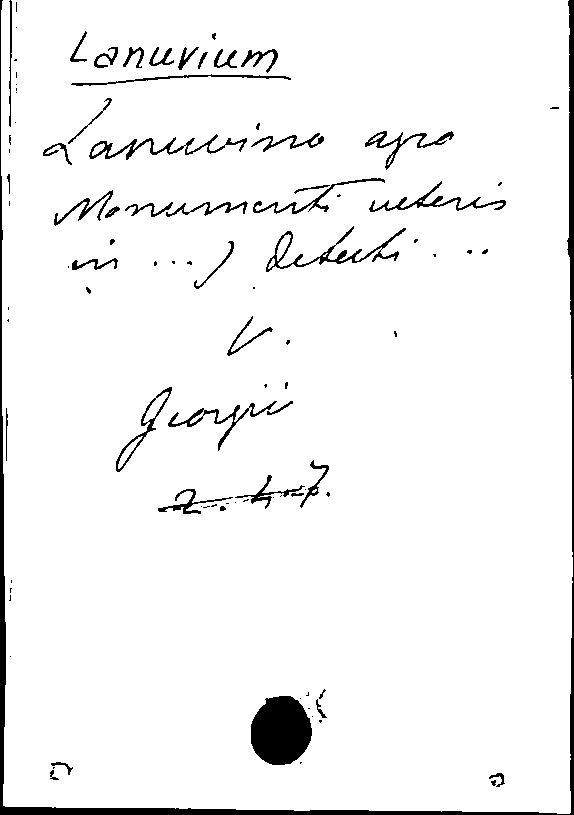 Lanuvium
Lanuvino agro
Monumenti veteris
in ...) detecti ...
V.
Georgii
2.4.7.